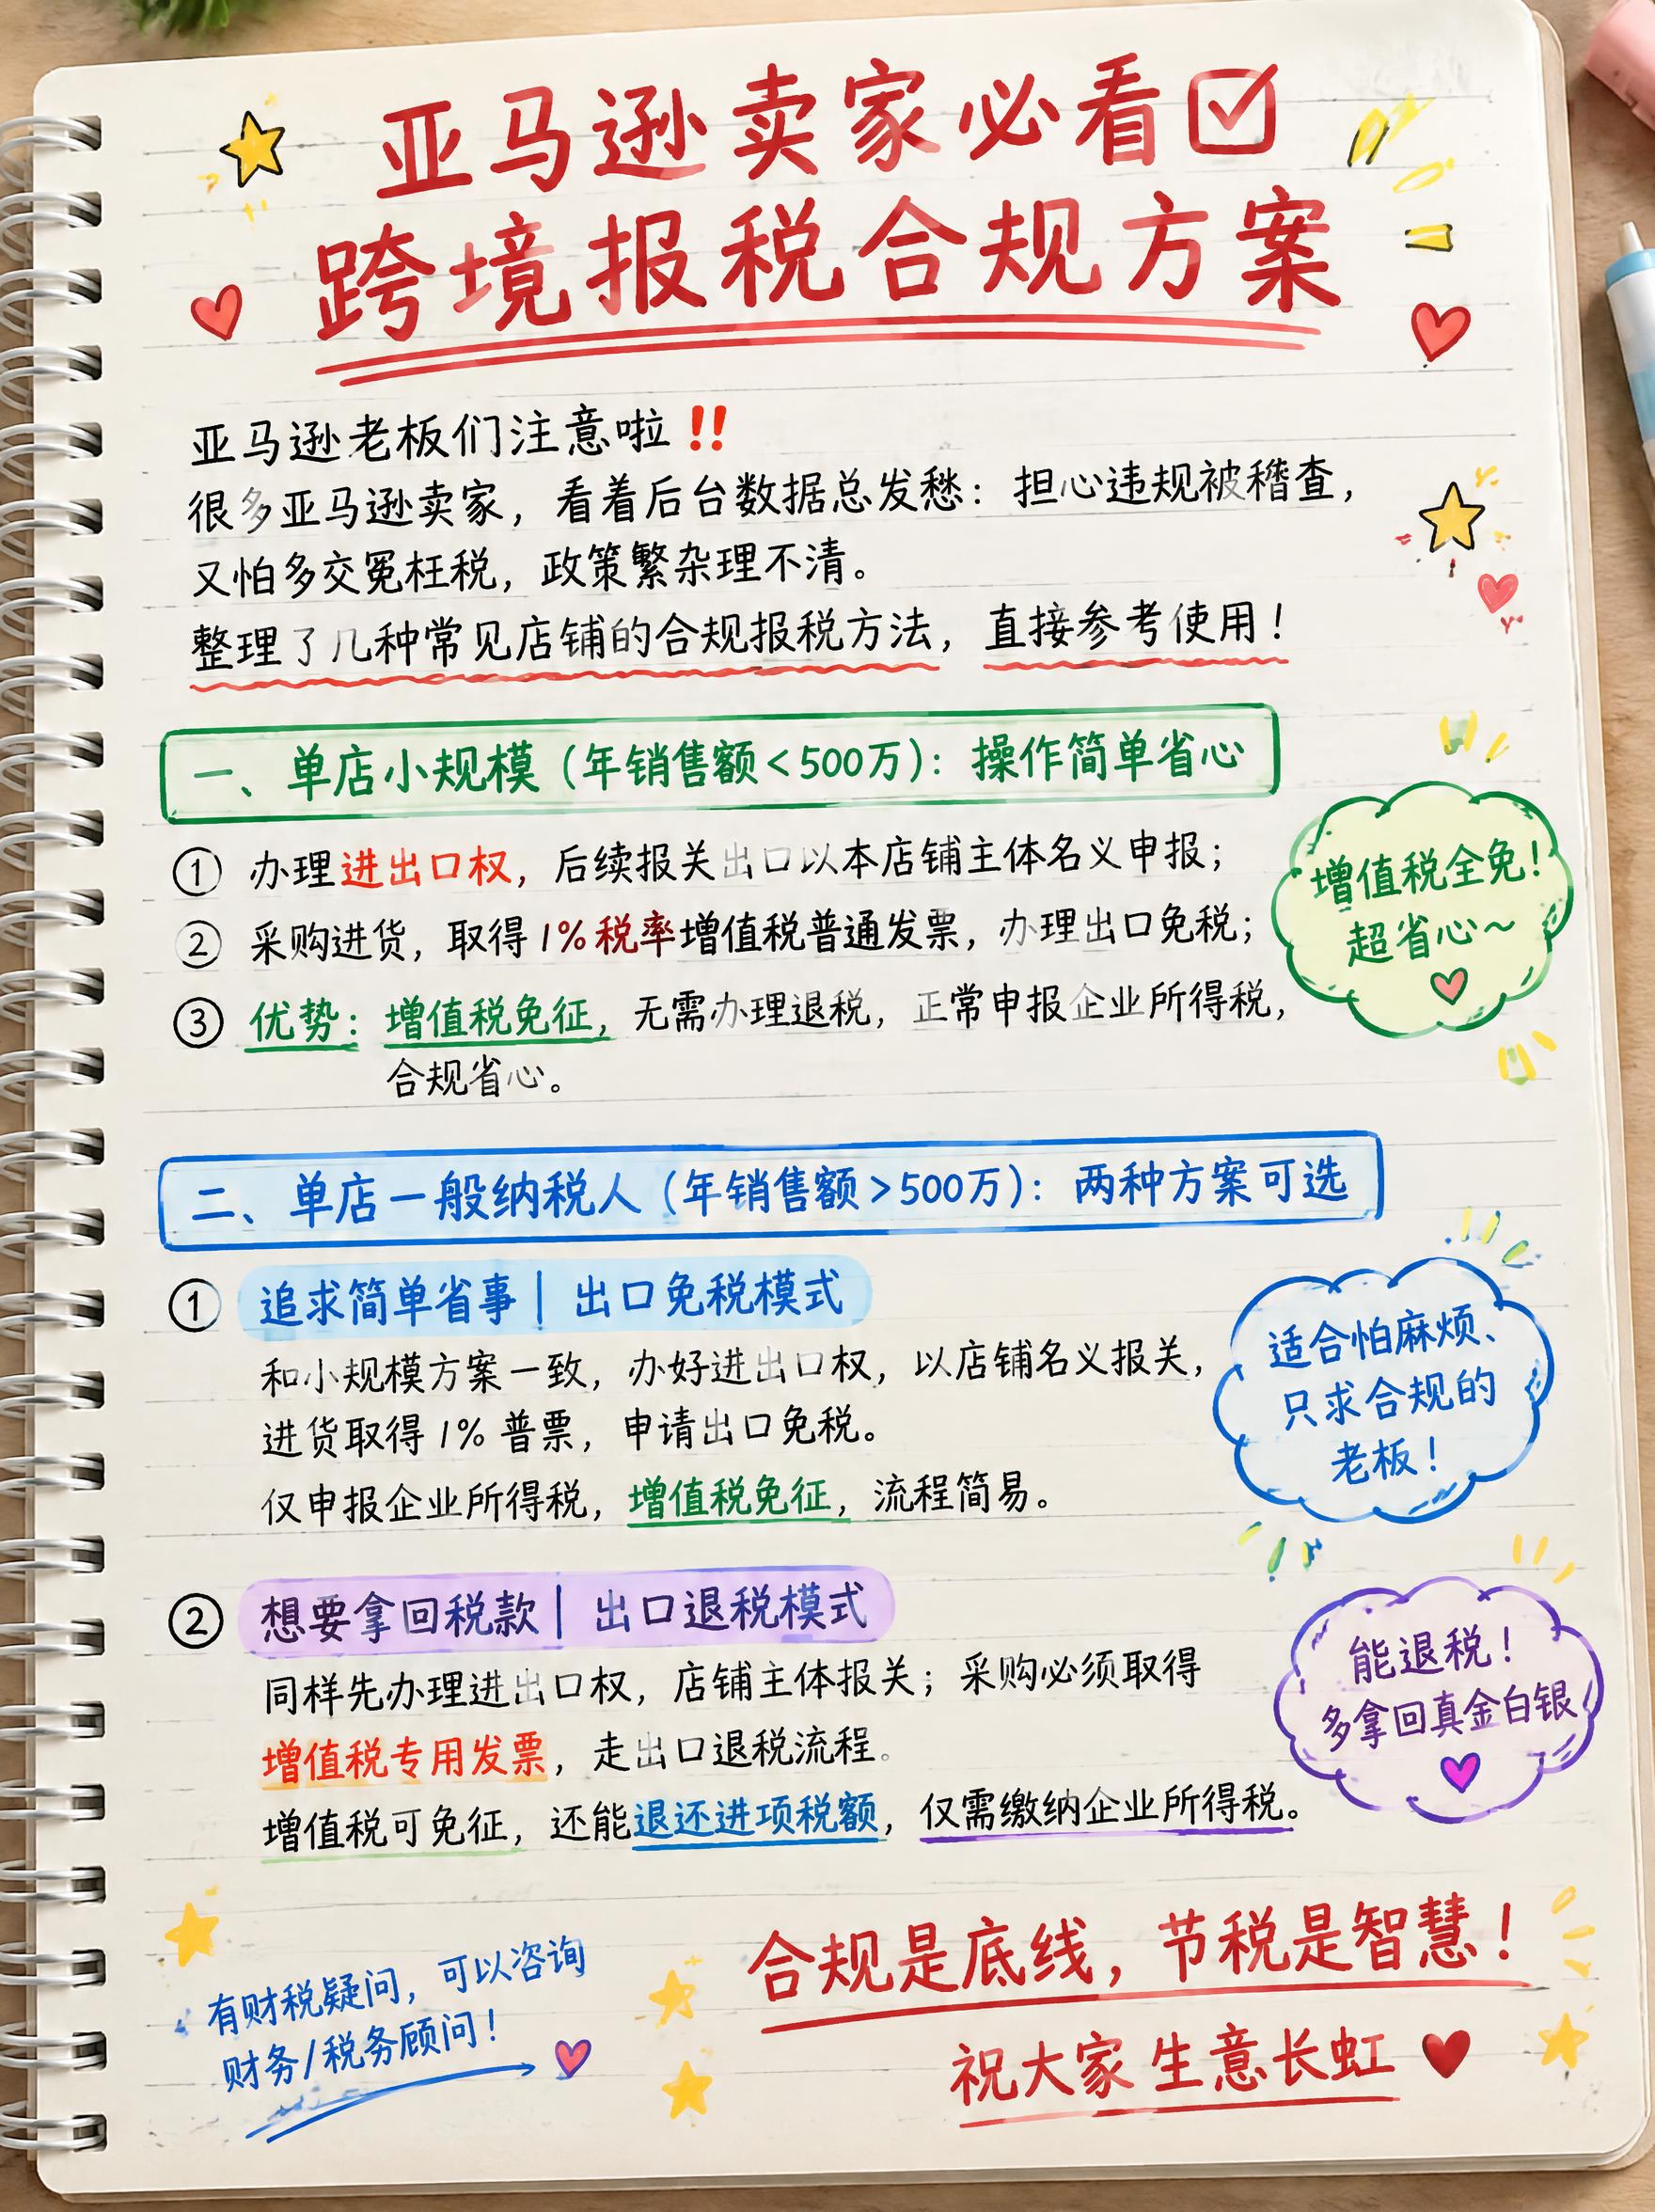 亚马逊卖家必看
跨境报税合规方案
亚马逊老板们注意啦‼
很多亚马逊卖家，看着后台数据总发愁：担心违规被稽查，
又怕多交冤枉税，政策繁杂理不清。
整理了几种常见店铺的合规报税方法，直接参考使用！
一、单店小规模（年销售额<500万）：操作简单省心
① 办理进出口权，后续报关出口以本店铺主体名义申报；
② 采购进货，取得1%税率增值税普通发票，办理出口免税；
③ 优势：增值税免征，无需办理退税，正常申报企业所得税，
合规省心。
增值税全免！
超省心~
二、单店一般纳税人（年销售额>500万）：两种方案可选
① 追求简单省事｜出口免税模式
和小规模方案一致，办好进出口权，以店铺名义报关，
进货取得1%普票，申请出口免税。
仅申报企业所得税，增值税免征，流程简易。
适合怕麻烦、
只求合规的
老板！
② 想要拿回税款｜出口退税模式
同样先办理进出口权，店铺主体报关；采购必须取得
增值税专用发票，走出口退税流程。
增值税可免征，还能退还进项税额，仅需缴纳企业所得税。
能退税！
多拿回真金白银
有财税疑问，可以咨询
财务/税务顾问！
合规是底线，节税是智慧！
祝大家生意长虹